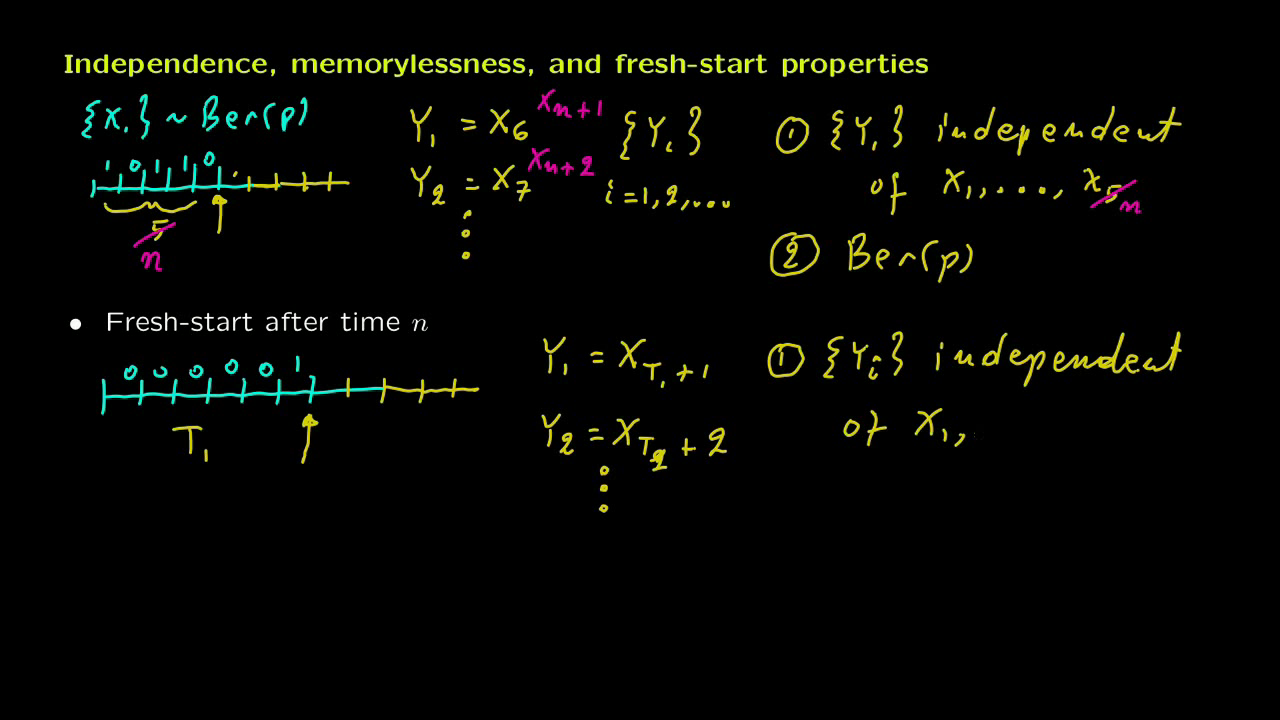 Independence, memorylessness, and fresh-start properties
{X.} ~ Ber(p)
1 0 1 1 0
5
n
Y₁ = X₆ Xₙ₊₁
Y₂ = X₇ Xₙ₊₂
{Yᵢ}
i = 1, 2, ...
① {Yᵢ} independent
of X₁, ..., X₅ n
② Ber(p)
• Fresh-start after time n
0 0 0 0 0 1
T₁
Y₁ = X_{T₁ + 1}
Y₂ = X_{T₂ + 2}
① {Yᵢ} independent
of X₁,